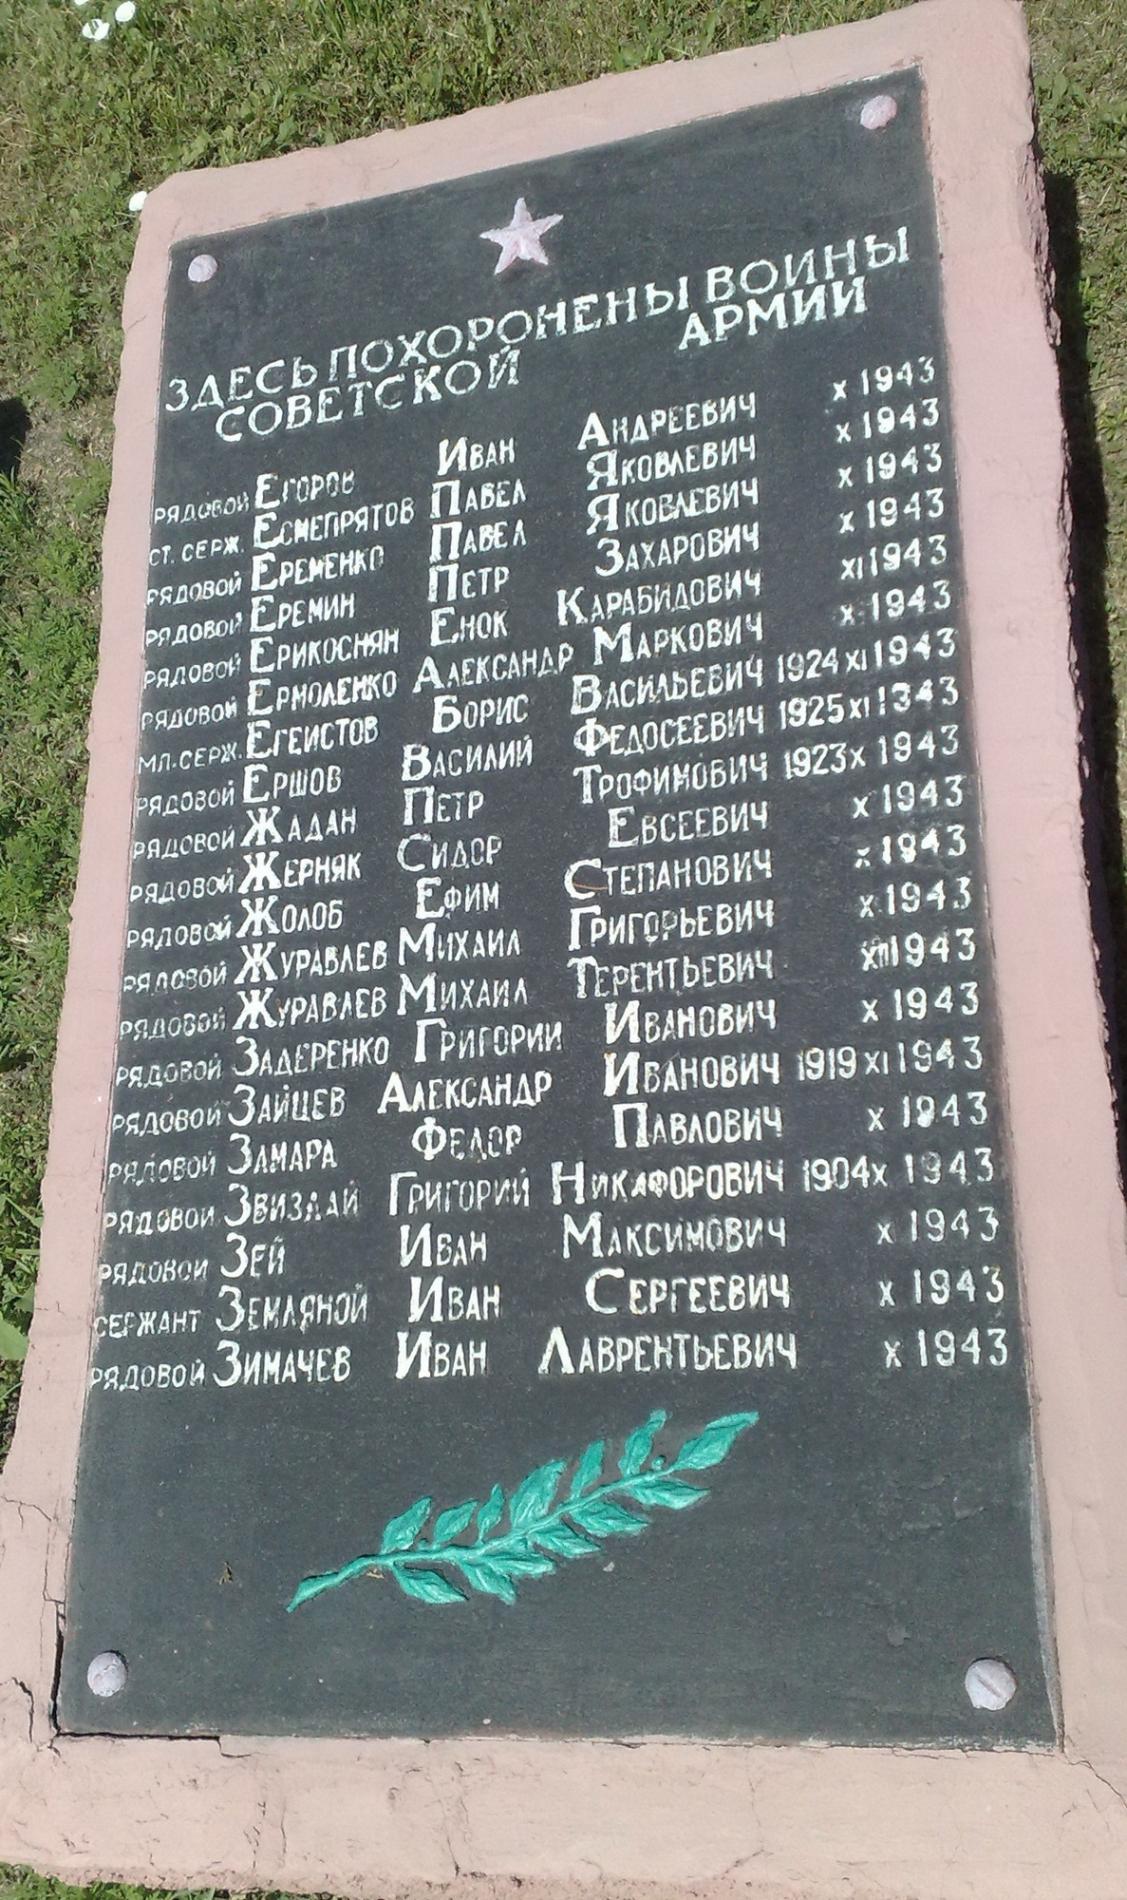 ЗДЕСЬ ПОХОРОНЕНЫ ВОИНЫ
СОВЕТСКОЙ АРМИИ
РЯДОВОЙ ЕГОРОВ ИВАН АНДРЕЕВИЧ X 1943
СТ. СЕРЖ. ЕСМЕПРЯТОВ ПАВЕЛ ЯКОВЛЕВИЧ X 1943
РЯДОВОЙ ЕРЕМЕНКО ПАВЕЛ ЯКОВЛЕВИЧ X 1943
РЯДОВОЙ ЕРЕМИН ПЕТР ЗАХАРОВИЧ X 1943
РЯДОВОЙ ЕРИКОСНЯН ЕНОК КАРАБИДОВИЧ XI 1943
РЯДОВОЙ ЕРМОЛЕНКО АЛЕКСАНДР МАРКОВИЧ X 1943
МЛ. СЕРЖ. ЕГЕИСТОВ БОРИС ВАСИЛЬЕВИЧ 1924 XI 1943
РЯДОВОЙ ЕРШОВ ВАСИЛИЙ ФЕДОСЕЕВИЧ 1925 XI 1343
РЯДОВОЙ ЖАДАН ПЕТР ТРОФИМОВИЧ 1923 X 1943
РЯДОВОЙ ЖЕРНЯК СИДОР ЕВСЕЕВИЧ X 1943
РЯДОВОЙ ЖОЛОБ ЕФИМ СТЕПАНОВИЧ X 1943
РЯДОВОЙ ЖУРАВЛЕВ МИХАИЛ ГРИГОРЬЕВИЧ X 1943
РЯДОВОЙ ЖУРАВЛЕВ МИХАИЛ ТЕРЕНТЬЕВИЧ 1943
РЯДОВОЙ ЗАДЕРЕНКО ГРИГОРИИ ИВАНОВИЧ X 1943
РЯДОВОЙ ЗАЙЦЕВ АЛЕКСАНДР ИВАНОВИЧ 1919 XI 1943
РЯДОВОЙ ЗАМАРА ФЕДОР ПАВЛОВИЧ X 1943
РЯДОВОЙ ЗВИЗДАЙ ГРИГОРИЙ НИКАФОРОВИЧ 1904 X 1943
РЯДОВОЙ ЗЕЙ ИВАН МАКСИМОВИЧ X 1943
СЕРЖАНТ ЗЕМЛЯНОЙ ИВАН СЕРГЕЕВИЧ X 1943
РЯДОВОЙ ЗИМАЧЕВ ИВАН ЛАВРЕНТЬЕВИЧ X 1943